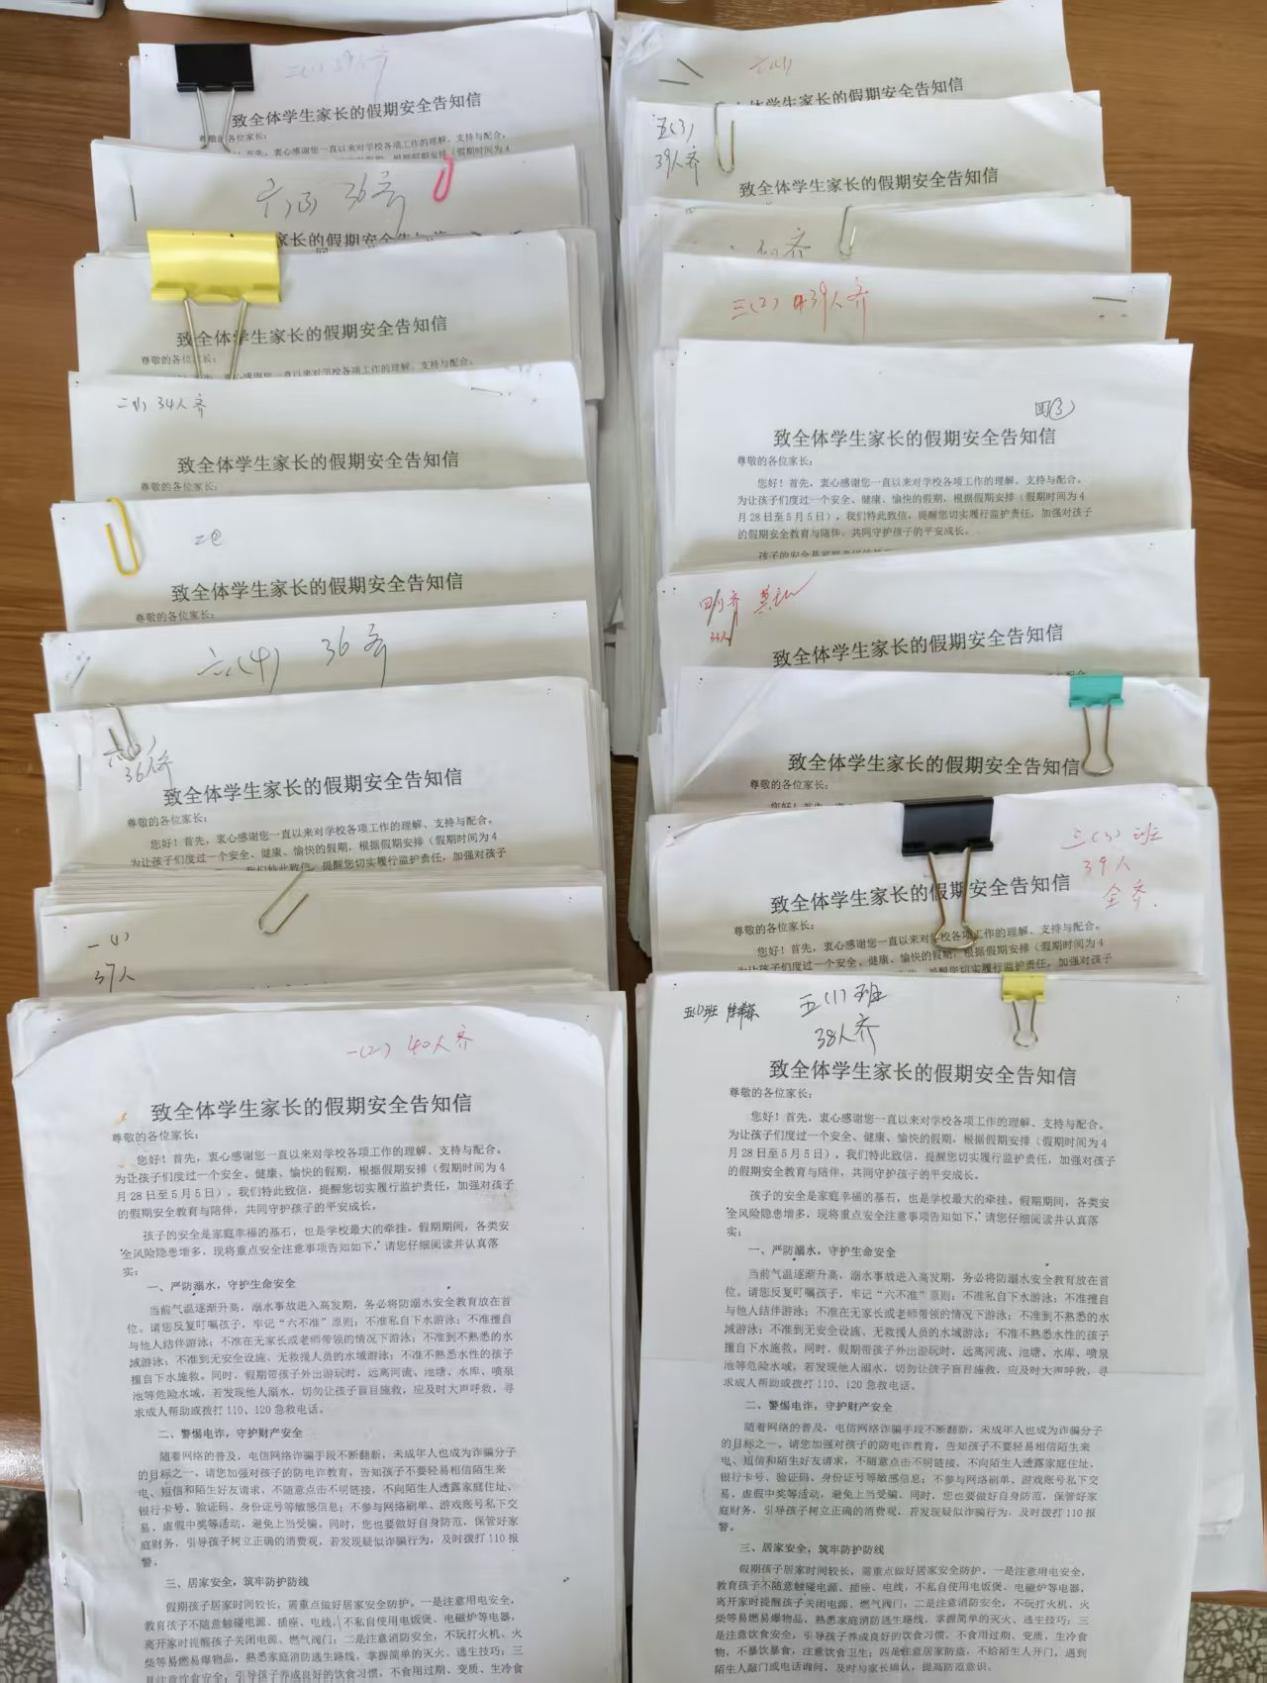 二(1) 39人齐
致全体学生家长的假期安全告知信
尊敬的各位家长：
首先，衷心感谢您一直以来对学校各项工作的理解、支持与配合。
36齐
家长的假期安全告知信
致全体学生家长的假期安全告知信
尊敬的各位家长：
首先，衷心感谢您一直以来对学校各项工作的理解、支持与配合。
34人齐
致全体学生家长的假期安全告知信
尊敬的各位家长：
致全体学生家长的假期安全告知信
尊敬的各位家长：
六(4) 36齐
36人齐
致全体学生家长的假期安全告知信
尊敬的各位家长：
您好！首先，衷心感谢您一直以来对学校各项工作的理解、支持与配合。
为让孩子们度过一个安全、健康、愉快的假期，根据假期安排（假期时间为4
我们特此致信，提醒您切实履行监护责任，加强对孩子
37人
一(2) 40人齐
致全体学生家长的假期安全告知信
尊敬的各位家长：
您好！首先，衷心感谢您一直以来对学校各项工作的理解、支持与配合。
为让孩子们度过一个安全、健康、愉快的假期，根据假期安排（假期时间为4
月28日至5月5日），我们特此致信，提醒您切实履行监护责任，加强对孩子
的假期安全教育与陪伴，共同守护孩子的平安成长。
孩子的安全是家庭幸福的基石，也是学校最大的牵挂。假期期间，各类安
全风险隐患增多，现将重点安全注意事项告知如下，请您仔细阅读并认真落
实：
一、严防溺水，守护生命安全
当前气温逐渐升高，溺水事故进入高发期，务必将防溺水安全教育放在首
位。请您反复叮嘱孩子，牢记“六不准”原则：不准私自下水游泳；不准擅自
与他人结伴游泳；不准在无家长或老师带领的情况下游泳；不准到不熟悉的水
域游泳；不准到无安全设施、无救援人员的水域游泳；不准不熟悉水性的孩子
擅自下水施救。同时，假期带孩子外出游玩时，远离河流、池塘、水库、喷泉
池等危险水域，若发现他人溺水，切勿让孩子盲目施救，应及时大声呼救，寻
求成人帮助或拨打110、120急救电话。
二、警惕电诈，守护财产安全
随着网络的普及，电信网络诈骗手段不断翻新，未成年人也成为诈骗分子
的目标之一。请您加强对孩子的防电诈教育，告知孩子不要轻易相信陌生来
电、短信和陌生好友请求，不随意点击不明链接，不向陌生人透露家庭住址、
银行卡号、验证码、身份证号等敏感信息；不参与网络刷单、游戏账号私下交
易、虚假中奖等活动，避免上当受骗。同时，您也要做好自身防范，保管好家
庭财务，引导孩子树立正确的消费观，若发现疑似诈骗行为，及时拨打110报
警。
三、居家安全，筑牢防护防线
假期孩子居家时间较长，需重点做好居家安全防护。一是注意用电安全，
教育孩子不随意触碰电源、插座、电线，不私自使用电饭煲、电磁炉等电器，
离开家时提醒孩子关闭电源、燃气阀门；二是注意消防安全，不玩打火机、火
柴等易燃易爆物品，熟悉家庭消防逃生路线，掌握简单的灭火、逃生技巧；三
是注意饮食安全，引导孩子养成良好的饮食习惯，不食用过期、变质、生冷食
全体学生家长的假期安全告知信
五(3)
39人齐
致全体学生家长的假期安全告知信
齐
三(2) 39人齐
四(3)
致全体学生家长的假期安全告知信
尊敬的各位家长：
您好！首先，衷心感谢您一直以来对学校各项工作的理解、支持与配合。
为让孩子们度过一个安全、健康、愉快的假期，根据假期安排（假期时间为4
月28日至5月5日），我们特此致信，提醒您切实履行监护责任，加强对孩子
的假期安全教育与陪伴，共同守护孩子的平安成长。
致全体学生家长的假期安全告知信
致全体学生家长的假期安全告知信
尊敬的各位家长：
三(3)班
39人
全齐.
致全体学生家长的假期安全告知信
尊敬的各位家长：
您好！首先，衷心感谢您一直以来对学校各项工作的理解、支持与配合。
为让孩子们度过一个安全、健康、愉快的假期，根据假期安排（假期时间为4
五(1)班
38人齐
致全体学生家长的假期安全告知信
尊敬的各位家长：
您好！首先，衷心感谢您一直以来对学校各项工作的理解、支持与配合。
为让孩子们度过一个安全、健康、愉快的假期，根据假期安排（假期时间为4
月28日至5月5日），我们特此致信，提醒您切实履行监护责任，加强对孩子
的假期安全教育与陪伴，共同守护孩子的平安成长。
孩子的安全是家庭幸福的基石，也是学校最大的牵挂。假期期间，各类安
全风险隐患增多，现将重点安全注意事项告知如下，请您仔细阅读并认真落
实：
一、严防溺水，守护生命安全
当前气温逐渐升高，溺水事故进入高发期，务必将防溺水安全教育放在首
位。请您反复叮嘱孩子，牢记“六不准”原则：不准私自下水游泳；不准擅自
与他人结伴游泳；不准在无家长或老师带领的情况下游泳；不准到不熟悉的水
域游泳；不准到无安全设施、无救援人员的水域游泳；不准不熟悉水性的孩子
擅自下水施救。同时，假期带孩子外出游玩时，远离河流、池塘、水库、喷泉
池等危险水域，若发现他人溺水，切勿让孩子盲目施救，应及时大声呼救，寻
求成人帮助或拨打110、120急救电话。
二、警惕电诈，守护财产安全
随着网络的普及，电信网络诈骗手段不断翻新，未成年人也成为诈骗分子
的目标之一。请您加强对孩子的防电诈教育，告知孩子不要轻易相信陌生来
电、短信和陌生好友请求，不随意点击不明链接，不向陌生人透露家庭住址、
银行卡号、验证码、身份证号等敏感信息；不参与网络刷单、游戏账号私下交
易、虚假中奖等活动，避免上当受骗。同时，您也要做好自身防范，保管好家
庭财务，引导孩子树立正确的消费观，若发现疑似诈骗行为，及时拨打110报
警。
三、居家安全，筑牢防护防线
假期孩子居家时间较长，需重点做好居家安全防护。一是注意用电安全，
教育孩子不随意触碰电源、插座、电线，不私自使用电饭煲、电磁炉等电器，
离开家时提醒孩子关闭电源、燃气阀门；二是注意消防安全，不玩打火机、火
柴等易燃易爆物品，熟悉家庭消防逃生路线，掌握简单的灭火、逃生技巧；三
是注意饮食安全，引导孩子养成良好的饮食习惯，不食用过期、变质、生冷食
物，不暴饮暴食，注意饮食卫生；四是注意居家防盗，不给陌生人开门，遇到
陌生人敲门或电话询问，及时与家长确认，提高防范意识。